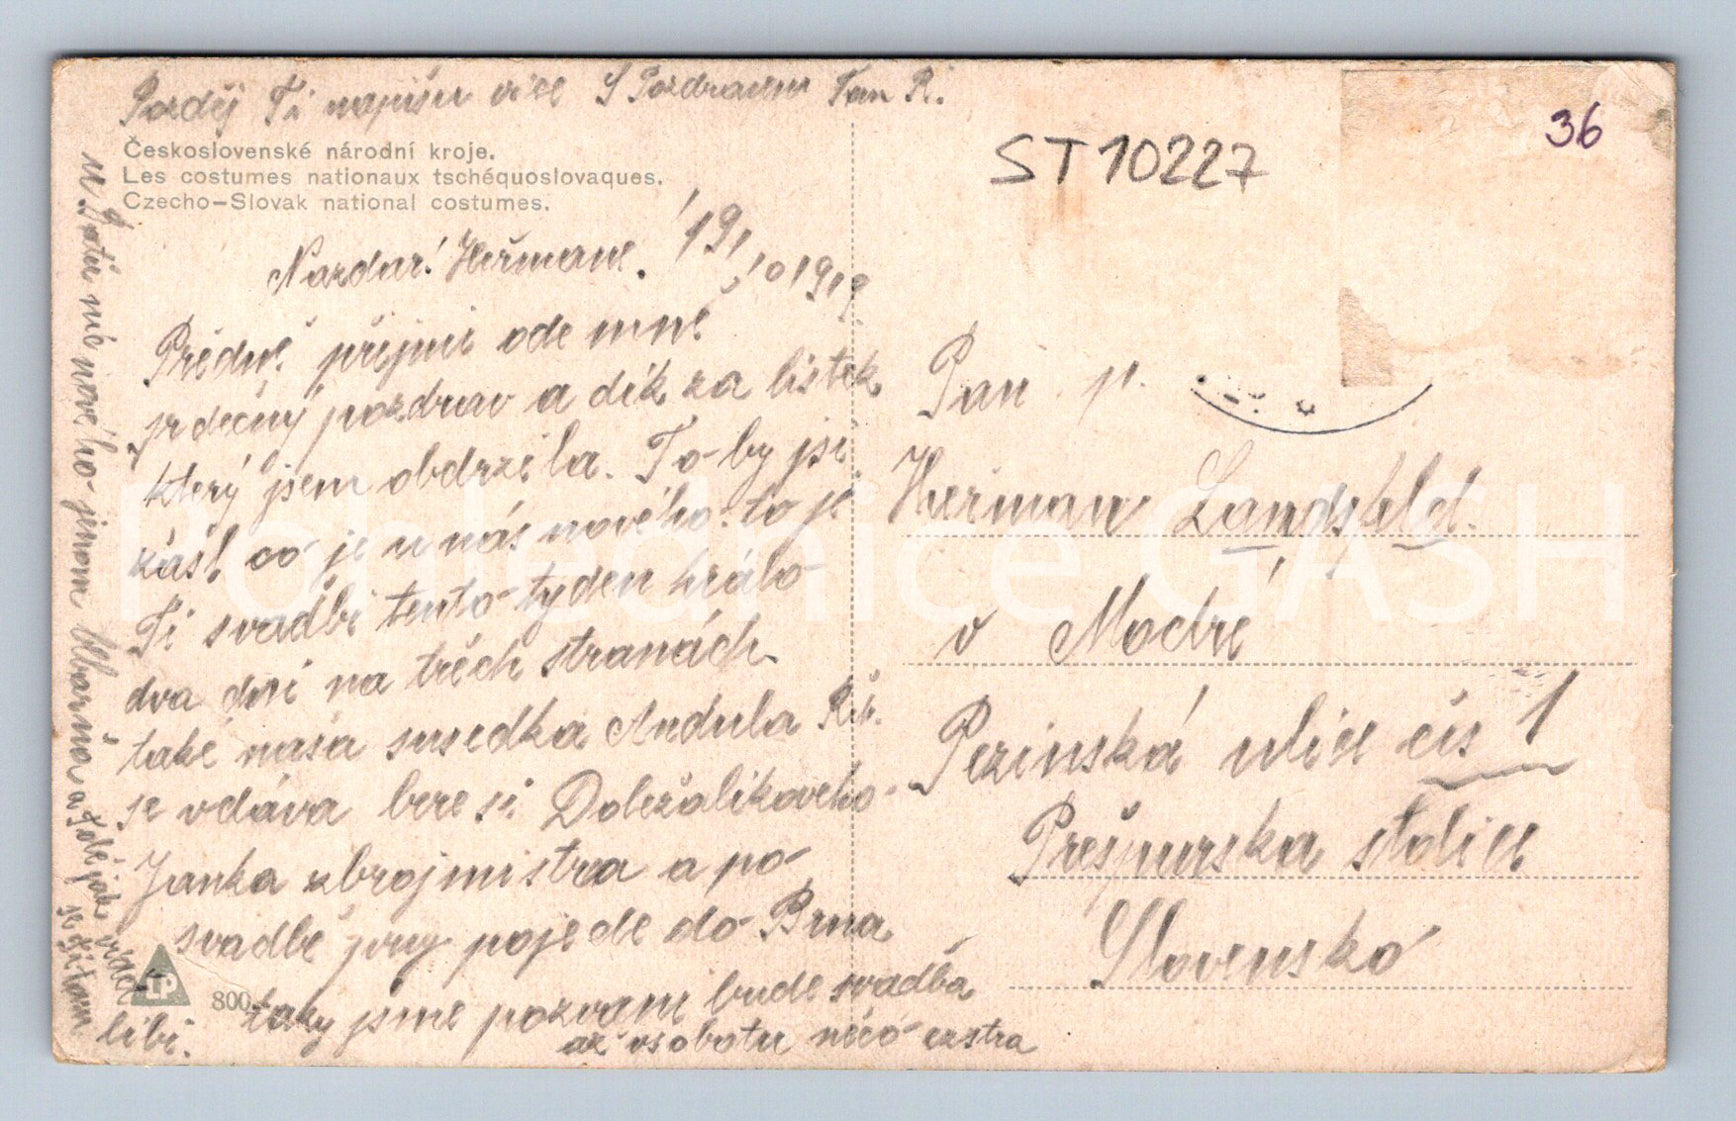 Pozděj Ti napíšu více S Pozdravem Fan R.
Československé národní kroje.
Les costumes nationaux tschéquoslovaques.
Czecho-Slovak national costumes.
Nazdar! Heřmane. 19/10 1919.
Předně přijmi ode mně
srdečný pozdrav a dík za lístek
který jsem obdržela. To-by jsi
rást co je u nás nového. to je
Ti svadbi tento tyden hrálo
dva dni na třéch stranách
také naša susedka Andula Rih.
se vdáva bere si Doležalikoveho
Janka zbrojmistra a po
svadbě prý pojede do Brna
taky jsme pozvani bude svadba
až v sobotu něco extra
nic nového jenom
a jak
se ti tam
líbí.
LP
800
ST 10227
36
Pan p.
Heřman Landsfeld.
v Modré
Pezinská ulice čís 1
Prešpurska stolice
Slovensko
Pohlednice GASH